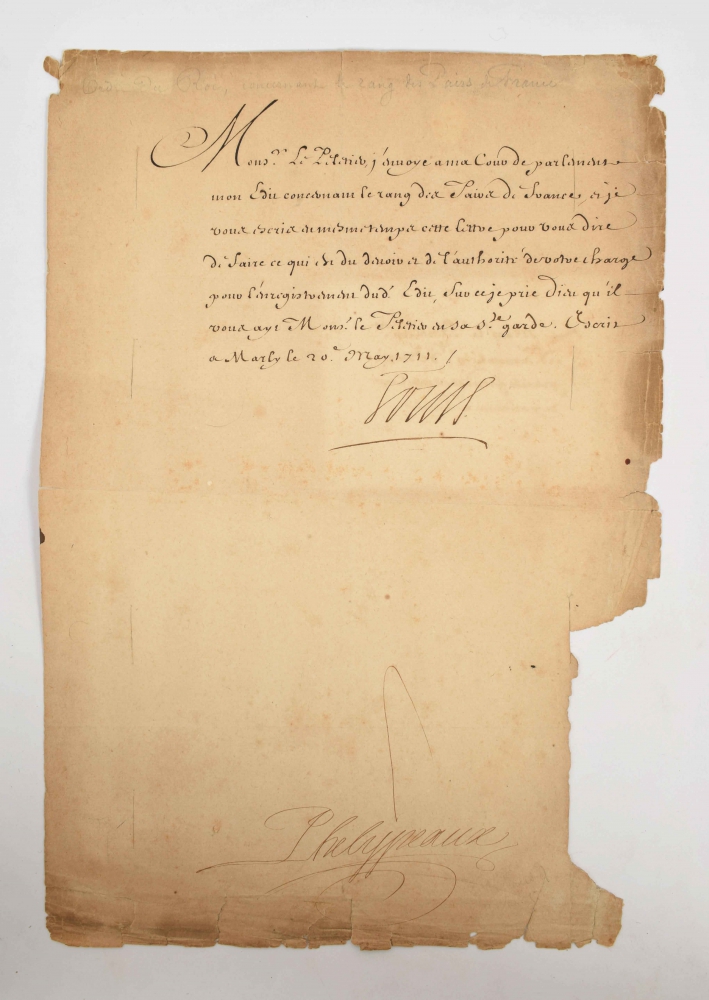 Ord. Du Roi, concernant le rang des Pairs de France
Mons.r Le Peletier, j'envoye a ma Cour de parlement
mon Edit concernant le rang des Pairs de France, et je
vous escris en mesme temps cette lettre pour vous dire
de faire ce qui est du devoir et de l'authorité de votre charge
pour l'enregistrement dud. Edit, Sur ce je prie Dieu qu'il
vous ayt Mons.r le Peletier en sa s.te garde. Escrit
a Marly le 20.e May. 1711. /
Louis
Phelypeaux